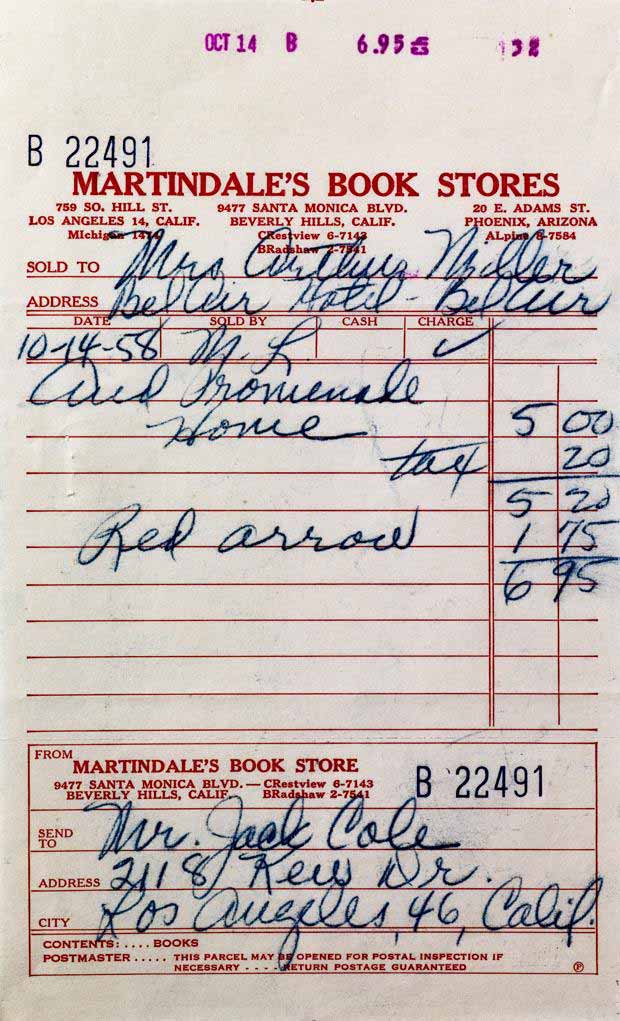 OCT 14 B 6.95 132
B 22491
MARTINDALE'S BOOK STORES
759 SO. HILL ST. 9477 SANTA MONICA BLVD. 20 E. ADAMS ST.
LOS ANGELES 14, CALIF. BEVERLY HILLS, CALIF. PHOENIX, ARIZONA
MIchigan 1474 CRestview 6-7143 ALpine 8-7584
BRadshaw 2-7541
SOLD TO Mrs Arthur Miller
ADDRESS Bel Air Hotel - Bel Air
DATE SOLD BY CASH CHARGE
10-14-58 M. L. ✓
And Promenade
Home 5 00
tax 20
5 20
Red arrow 1 75
6 95
FROM
MARTINDALE'S BOOK STORE
9477 SANTA MONICA BLVD. — CRestview 6-7143
BEVERLY HILLS, CALIF. BRadshaw 2-7541
B 22491
SEND TO Mr. Jack Cole
ADDRESS 2118 Kew Dr.
CITY Los Angeles, 46, Calif.
CONTENTS: .... BOOKS
POSTMASTER ..... THIS PARCEL MAY BE OPENED FOR POSTAL INSPECTION IF
NECESSARY - - - - RETURN POSTAGE GUARANTEED
P